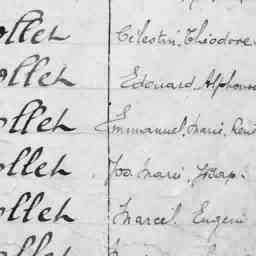 ollet Célestin, Théodore
ollet Edouard, Alphons
ollet Emmanuel, Marie, René
ollet Jos. Marie, Jbap.
ollet Marcel, Eugène
ollet